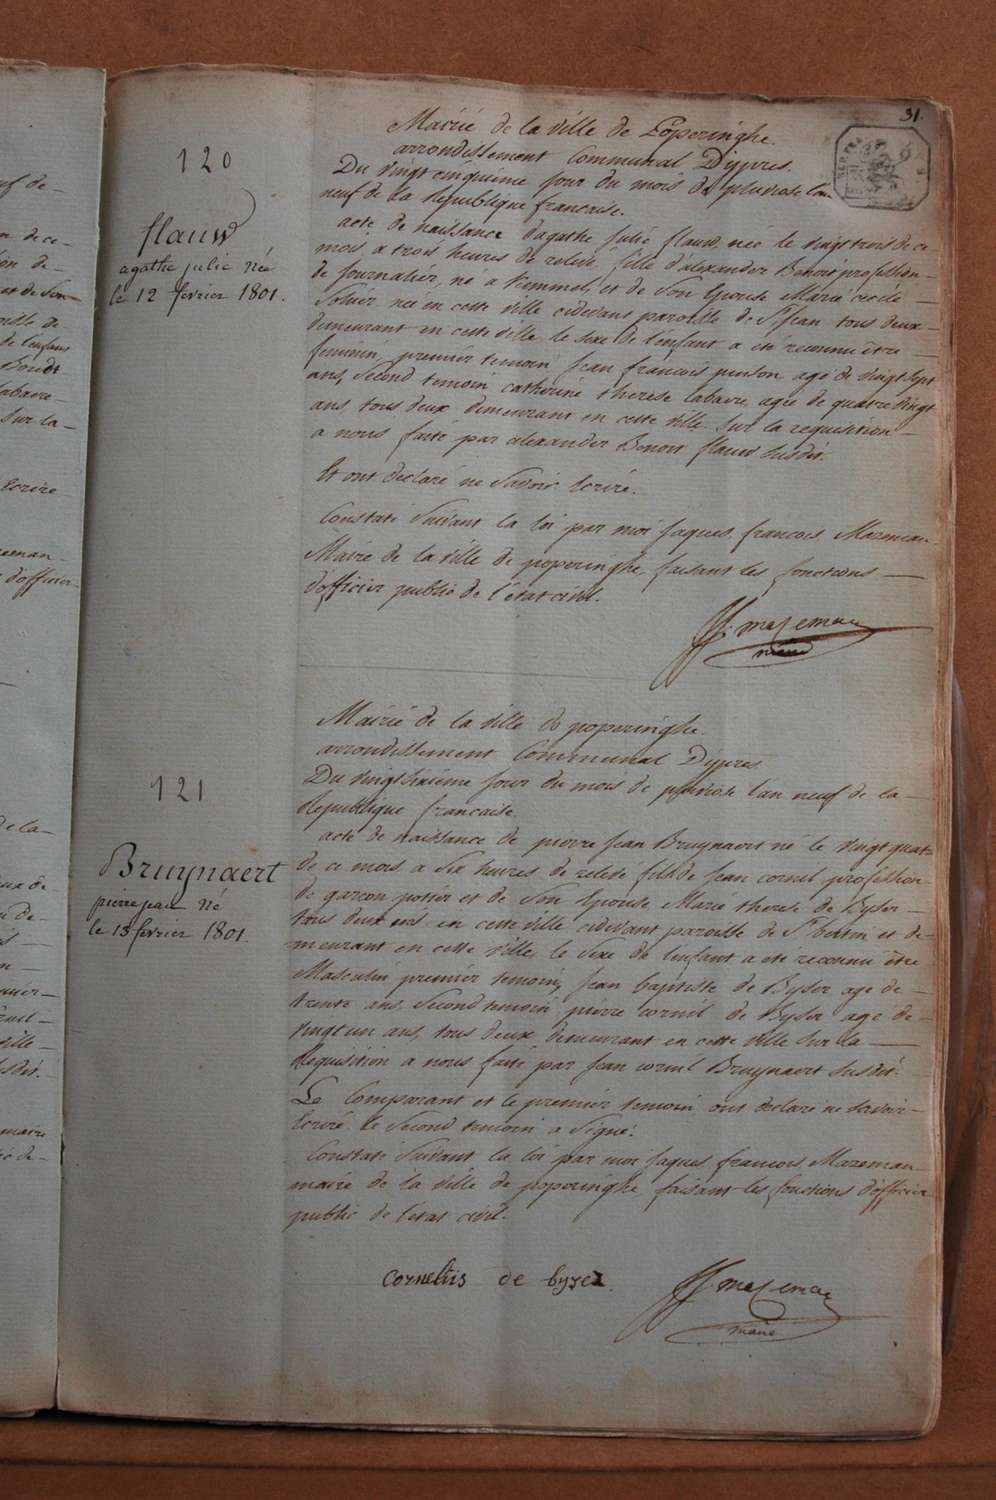 31.
120
flauw
agathe julie née
le 12 fevrier 1801.
Mairie de la ville de Poperinghe.
arrondissement Communal Dijpres.
Du vingt cinquième jour du mois de pluviose l'an
neuf de la Republique francaise.
acte de naissance d'agathe julie flauw, née le vingt trois de ce
mois, a trois heures de relevé, fille d'alexander Benoit profession-
de journalier, né a Kemmel, et de Son Epouse Marie cecile-
Sohier née en cette ville cidevant paroisse de St Jean tous deux-
demeurant en cette ville, le sexe de l'enfant a eté reconnu être-
feminin, premier temoin Jean francois age de vingt sept
ans, Second temoin catherine therese Labaere agée de quatre vingt
ans, tous deux demeurant en cette ville Sur la requisition-
a nous faite par alexander Benoit flauw Susdit.
Et ont declaré ne Savoir Ecrire.
Constaté Suivant la loi par moi Jaques francois Mazeman-
Maire de la ville de poperinghe, faisant les fonctions-
d'officier public de l'état civil.
JJ. mazeman
maire
121
Bruynaert
pierre jean né
le 13 fevrier 1801.
Mairie de la ville de poperinghe.
arrondissement Communal Dijpres
Du vingt Sixieme jour du mois de pluviose l'an neuf de la-
Republique francaise
acte de naissance de pierre Jean Bruynaert né le vingt quatre
de ce mois, a Six heures de relevé fils de Jean cornil profession-
de garcon potier et de Son Epouse Marie therese de Byser-
tous deux nés en cette ville cidevant paroisse de St bertin et de-
meurant en cette ville, le Sexe de l'enfant a eté reconnu être-
Masculin premier temoin, Jean baptiste de Byser age de-
trente ans, Second temoin pierre cornil de Byser age de-
vingt un ans, tous deux demeurant en cette ville Sur la-
Requisition a nous faite par Jean cornil Bruynaert Susdit.
Le Comparant et le premier temoin ont declaré ne Savoir-
Ecrire. le Second temoin a Signé.
Constaté Suivant la loi par moi Jaques francois Mazeman
maire de la ville de poperinghe faisant les fonctions d'officier
public de l'etat civil.
Cornelus de byser
JJ. mazeman
maire